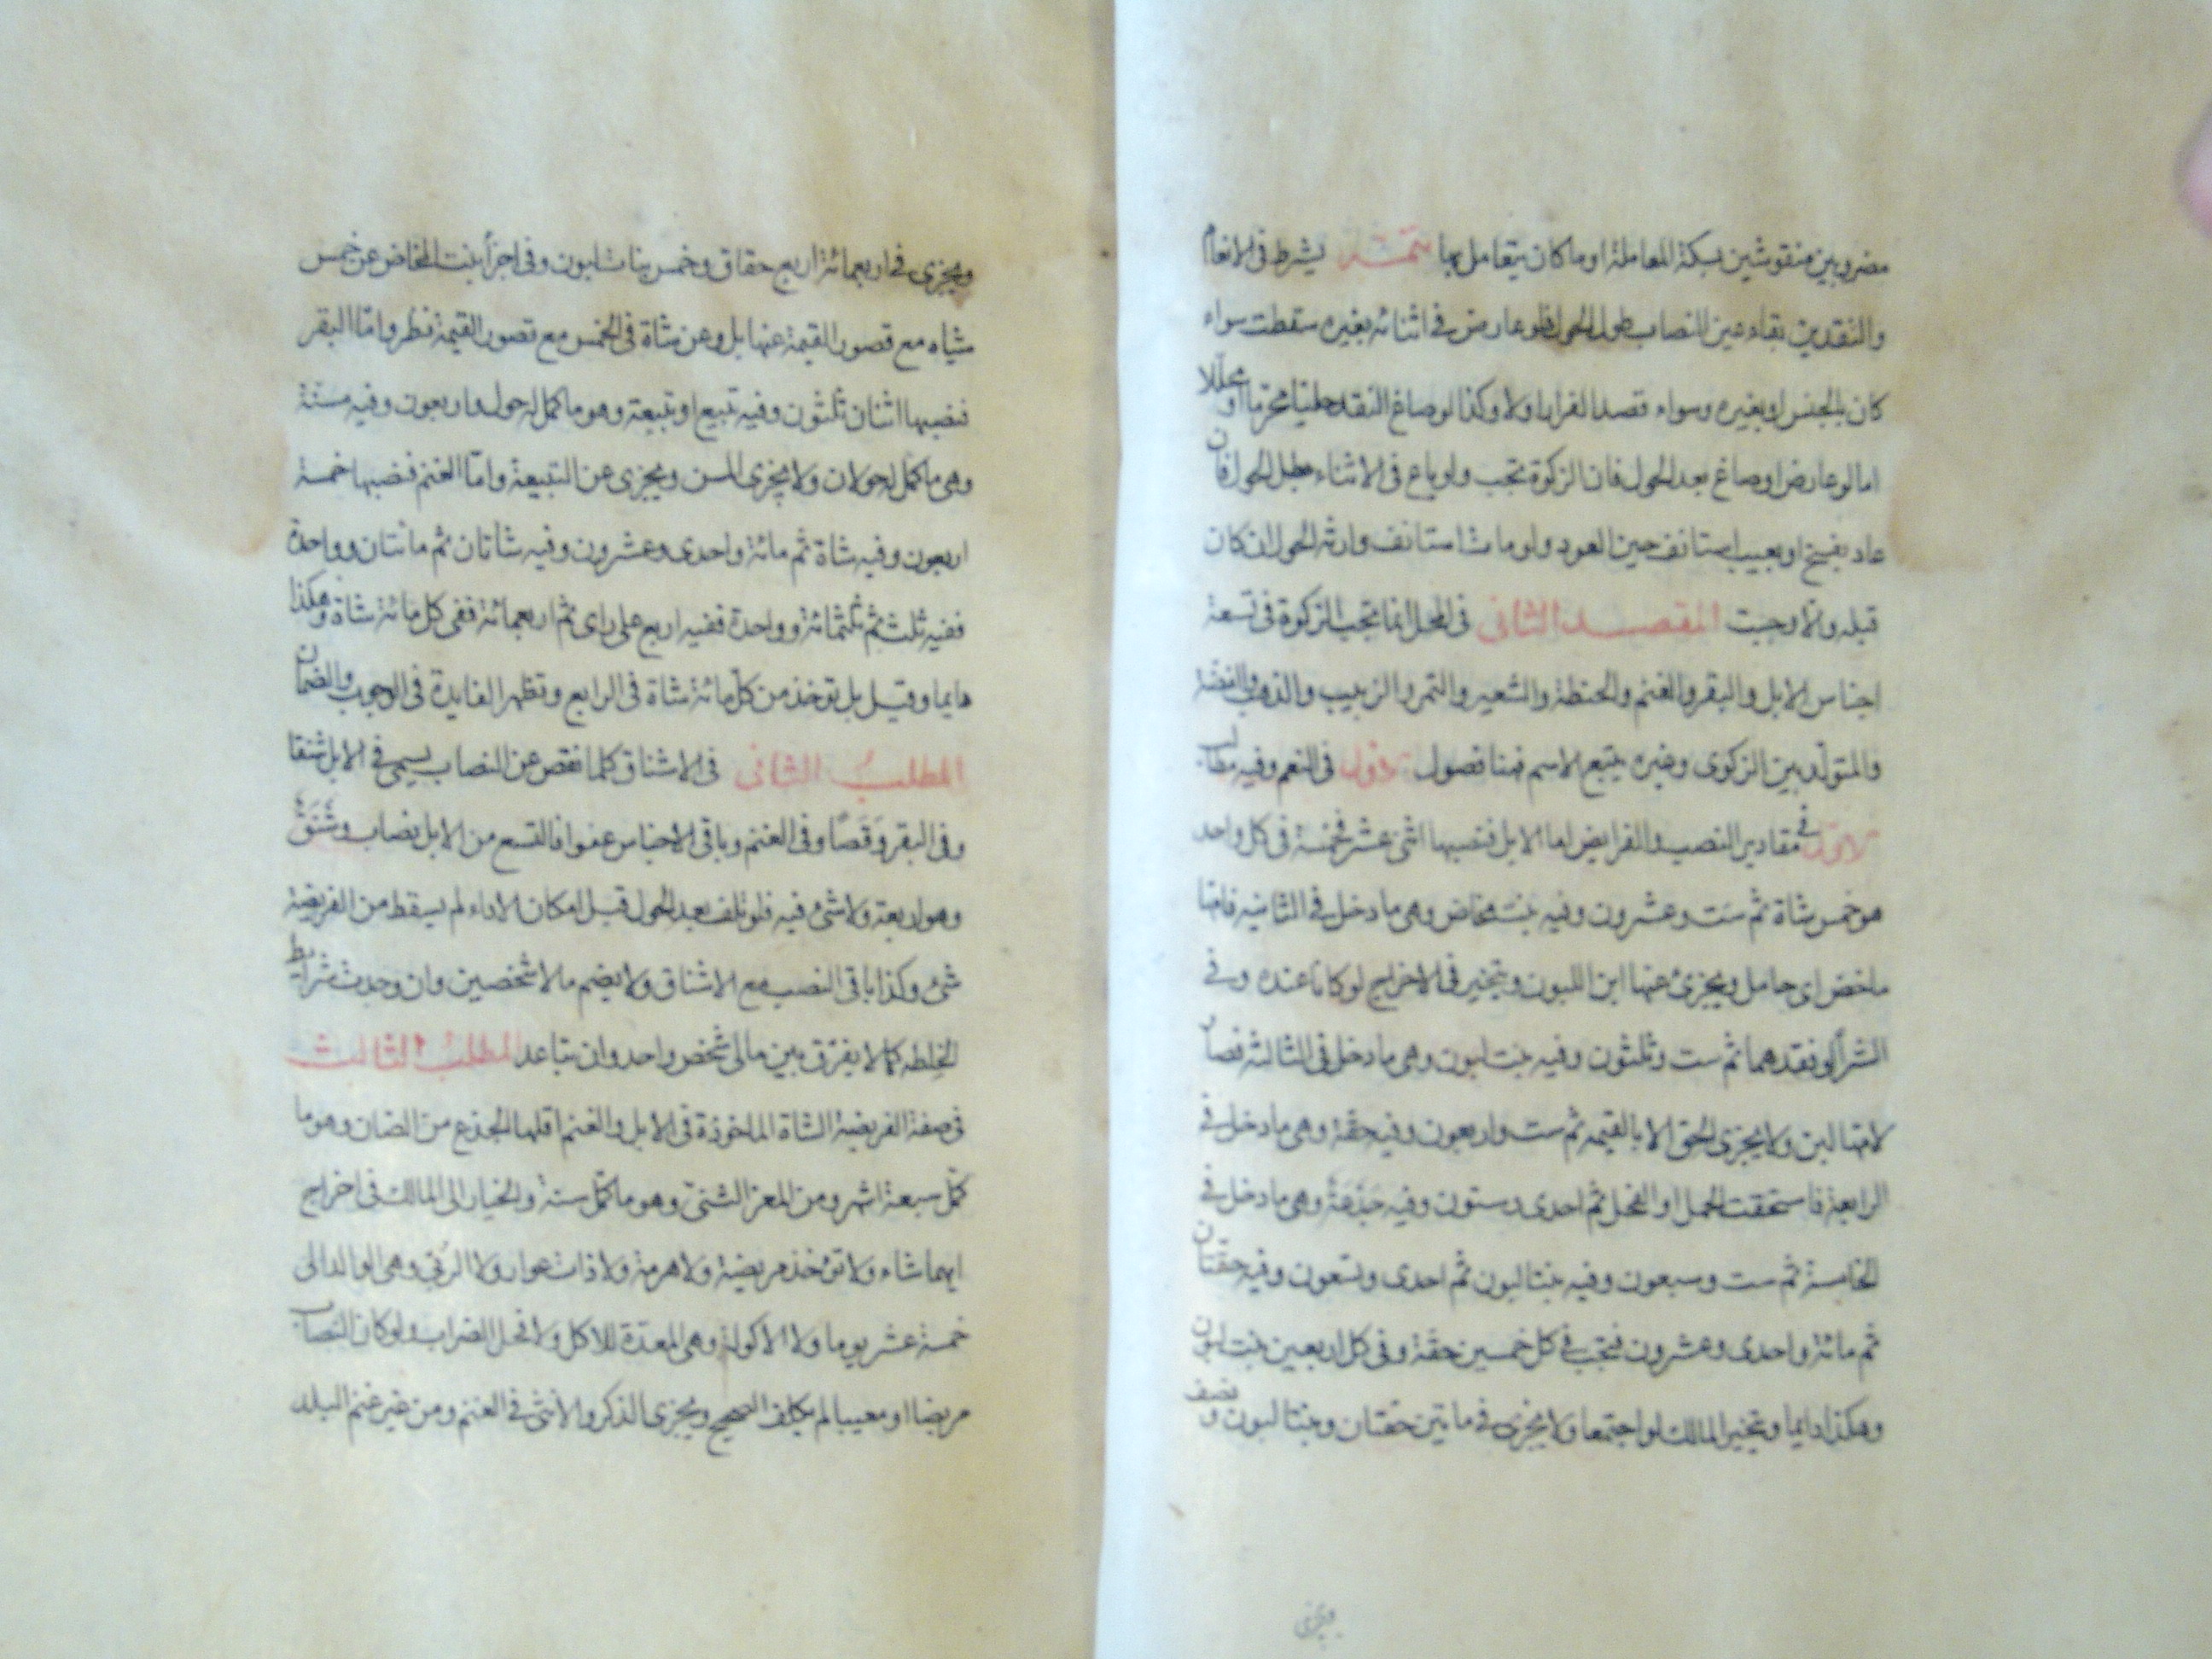 مضروبين منقوشين بسكة المعاملة او ما كان يتعامل بها تتمة يشرط فى الانعام
والنقدين بقاء عين النصاب طول الحول فلو عارض فى اثنائه بغيره سقطت سواء
كان بالجنس او بغيره وسواء قصد الفرار اولا وكذا لو صاغ النقد حليا محرما او محللا
اما لو عارض او صاغ بعد الحول فان الزكوة تجب ولو باع فى الاثناء بطل الحول فان
عاد بفسخ او بعيب استانف حين العود ولو مات استانف وارثه الحول ان كان
قبله والا وجبت المقصد الثانى فى المحل انما تجب الزكوة فى تسعة
اجناس الابل والبقر والغنم والحنطة والشعير والتمر والزبيب والذهب والفضة
والمتولد بين الزكوى وغيره يتبع الاسم فهنا فصول الاول فى النعم وفيه مطالب
الاول فى مقادير النصب والفرايض اما الابل فنصبها اثنى عشر خمسة فى كل واحد
هو خمس شاة ثم ست وعشرون وفيه بنت مخاض وهى ما دخل فى الثانيه فامها
ماخض اى حامل ويجزئ عنها ابن اللبون ويتخير فى الاخراج لو كانا عنده وفى
الشرأ لو فقدهما ثم ست وثلثون وفيه بنت لبون وهى ما دخل فى الثالثه فصار
لامها لبن ولا يجزى الحق الا بالقيمه ثم ست واربعون وفيه حقة وهى ما دخل فى
الرابعة فاستحقت الحمل او الفحل ثم احدى وستون وفيه جَذَعَة وهى ما دخل فى
الخامسة ثم ست وسبعون وفيه بنتا لبون ثم احدى وتسعون وفيه حقتان
ثم مائة واحدى وعشرون فتجب فى كل خمسين حقة وفى كل اربعين بنت لبون
وهكذا دايما ويتخير المالك لو اجتمعا ولا يجزى فى ماتين حقتان وبنتا لبون و نصف
ويجزى
ويجزى فى اربعمائة اربع حقاق وخمس بنات لبون وفى اجزأ بنت المخاض عن خمس
شياه مع قصور القيمة عنها بل وعن شاة فى الخمس مع قصور القيمة نظر واما البقر
فنصبها اثنان ثلثون وفيه تبيع او تبيعة وهو ما كمل له حول واربعون وفيه مسنة
وهى ما كمل لها حولان ولا يجزى المسن ويجزى عن التبيعة واما الغنم فنصبها خمسة
اربعون وفيه شاة ثم مائة واحدى وعشرون وفيه شاتان ثم مائتان وواحدة
ففيه ثلث ثم ثلثمائة وواحدة ففيه اربع على راى ثم اربعمائة ففى كل مائة شاة وهكذا
دايما وقيل بل توخذ من كل مائة شاة فى الرابع وتظهر الفايدة فى الوجوب والضمان
المطلب الثانى فى الاشناق كلما نقص عن النصاب يسمى فى الابل شنقا
وفى البقر وَقَصًا وفى الغنم وباقى الاجناس عفوا فالتسع من الابل نصاب وشَنَقٌ
وهو اربعة ولا شئ فيه فلو تلف بعد الحول قبل امكان الاداء لم يسقط من الفريضة
شئ وكذا باقى النصب مع الاشناق ولا يضم مالا شخصين وان وجدت شرايط
الخلطه كما لا يفرق بين مالى شخص واحد وان تباعد المطلب الثالث
فى صفة الفريضة الشاة الماخوذة فى الابل والغنم اقلها الجذع من الضان وهو ما
كمل سبعة اشهر ومن المعز الثنى وهو ما كمل سنة والخيار الى المالك فى اخراج
ايهما شاء ولا تؤخذ مريضة ولا هرمة ولا ذات عوار ولا الربى وهى الوالد الى
خمسة عشر يوما ولا الاكولة وهى المعدة للاكل ولا فحل الضراب ولو كان النصاب
مريضا او معيبا لم يكلف الصحيح ويجزى الذكر والانثى فى الغنم ومن غير غنم البلد